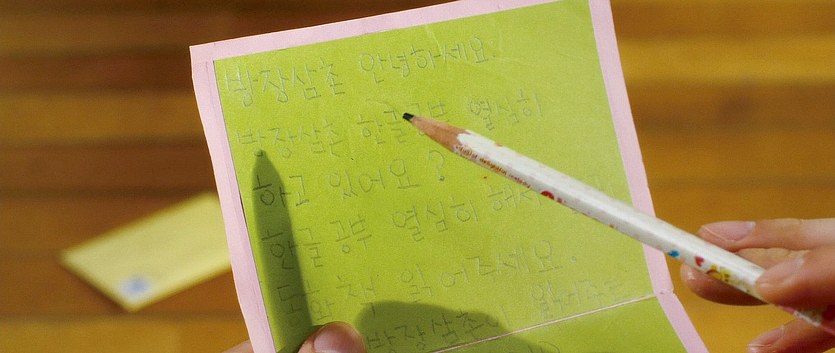 방장삼촌 안녕하세요
방장삼촌 한글공부 열심히
하고 있어요?
한글 공부 열심히 해서
동화책 읽어주세요.
방장삼촌이 읽어주는